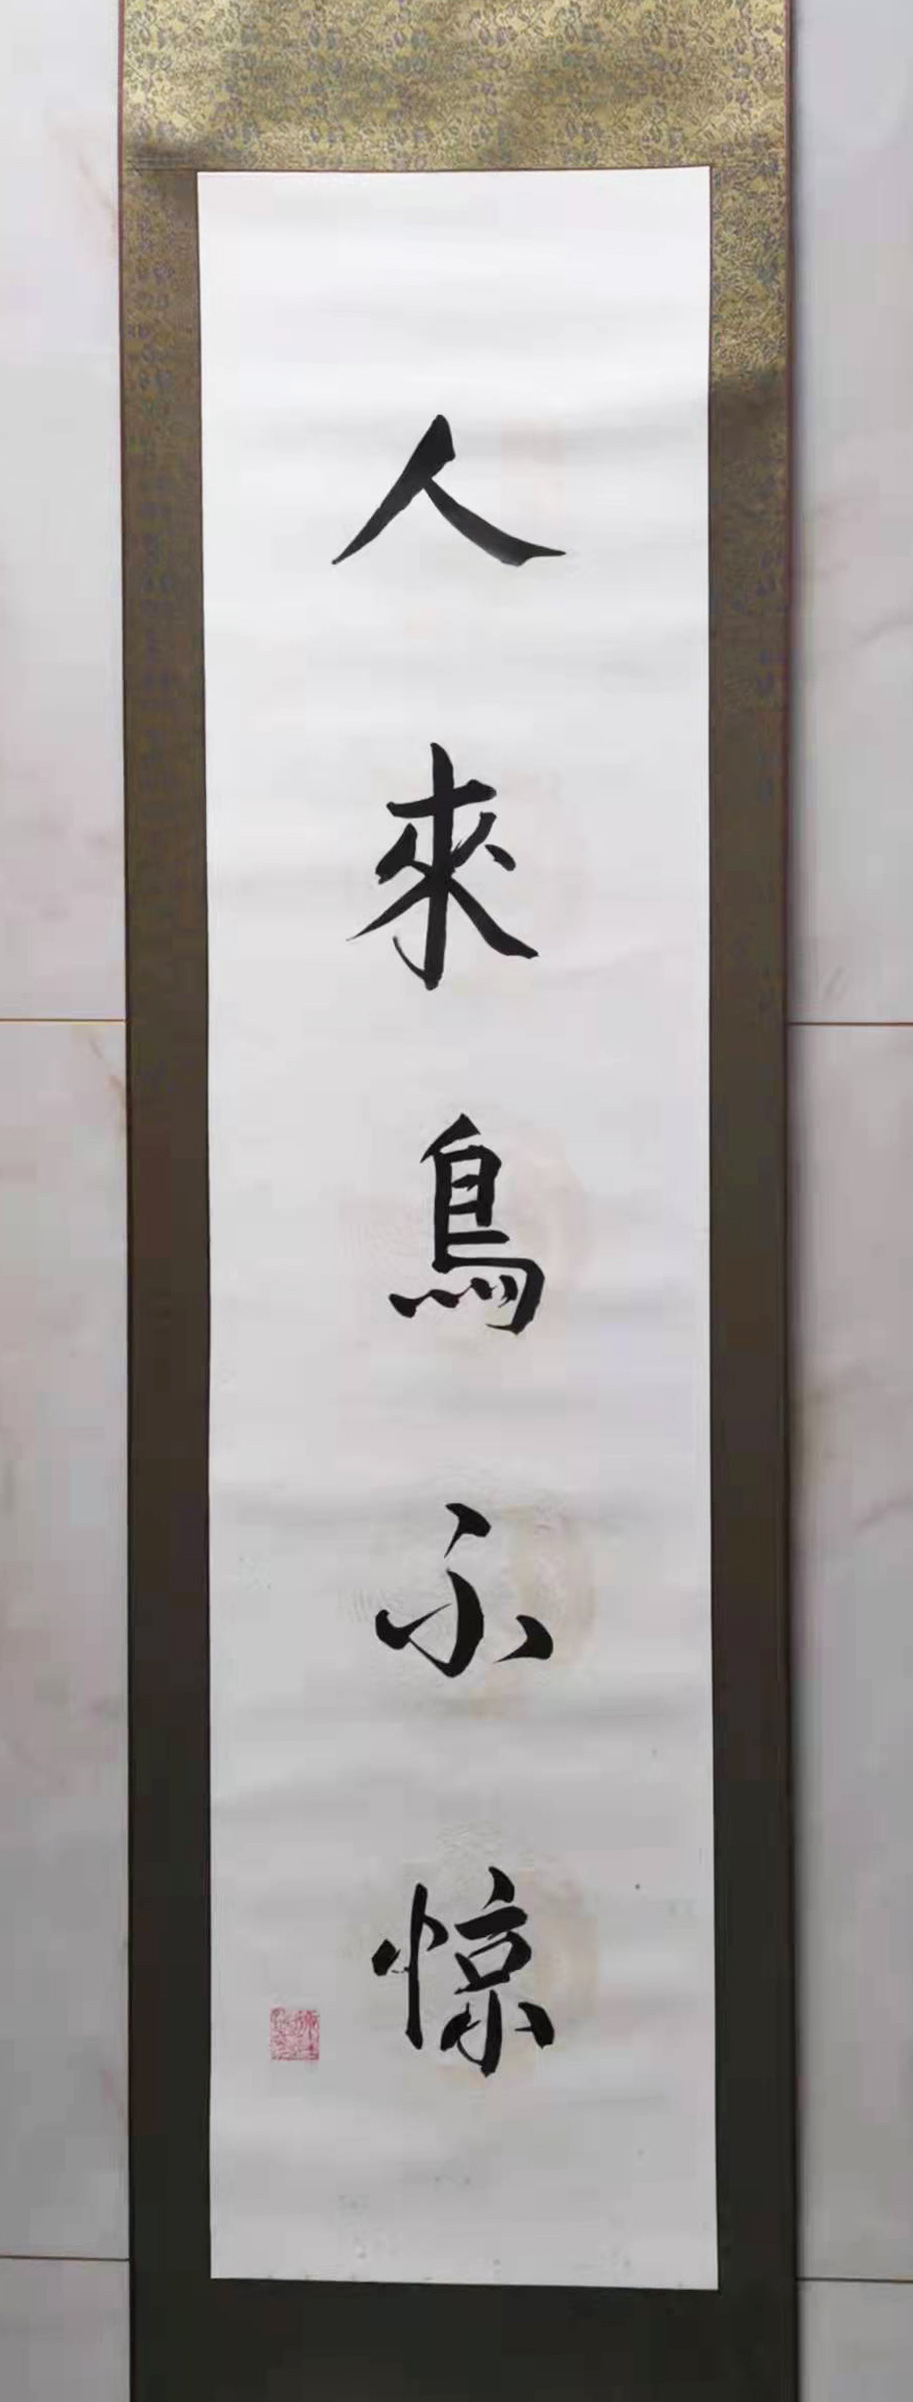 人來鳥不惊